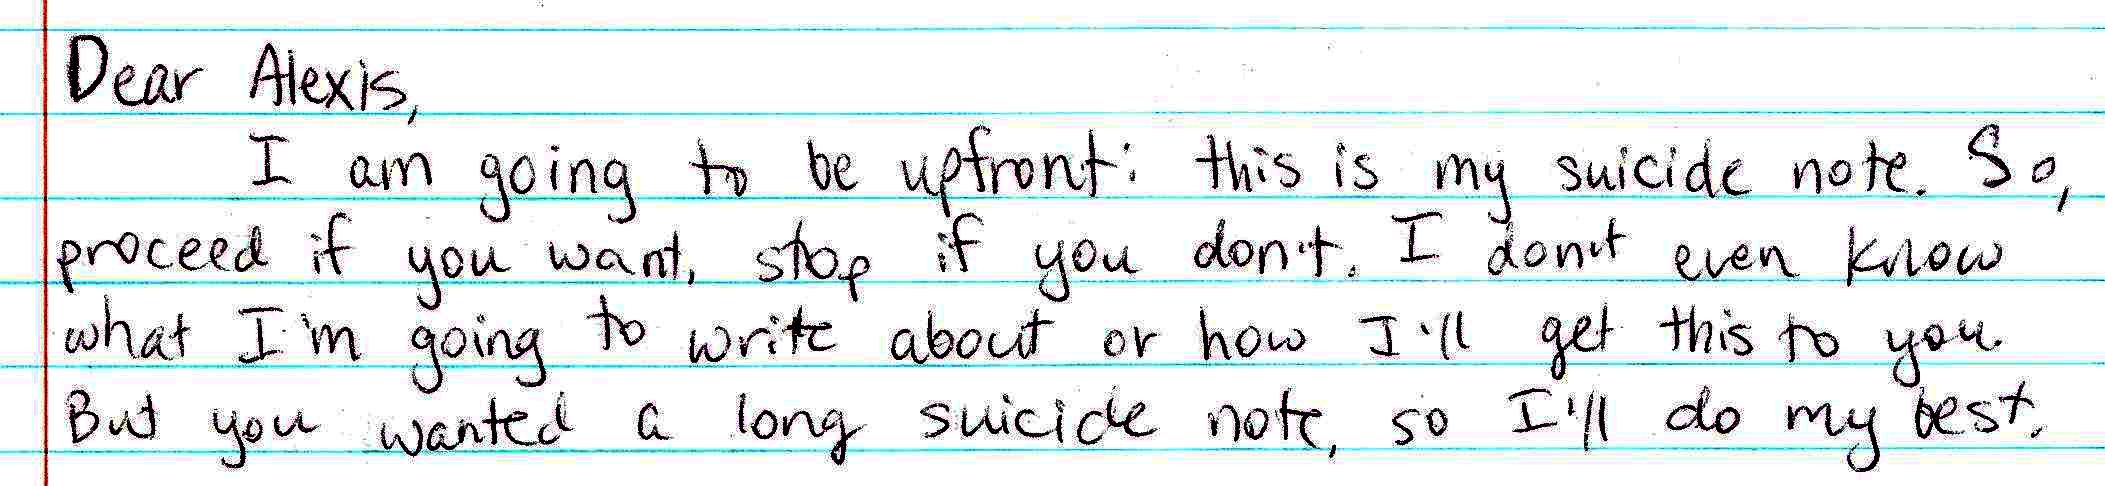 Dear Alexis,
I am going to be upfront: this is my suicide note. So,
proceed if you want, stop if you don't. I don't even know
what I'm going to write about or how I'll get this to you.
But you wanted a long suicide note, so I'll do my best.